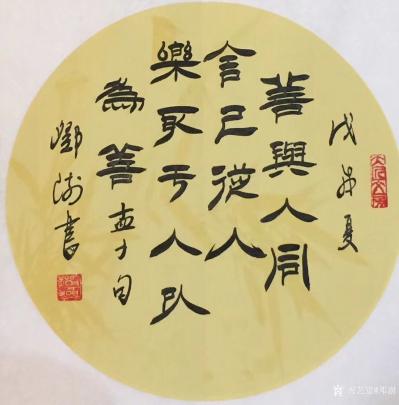 戊戌夏
善與人同
舍己從人
樂取于人以
為善孟子句
鄧書